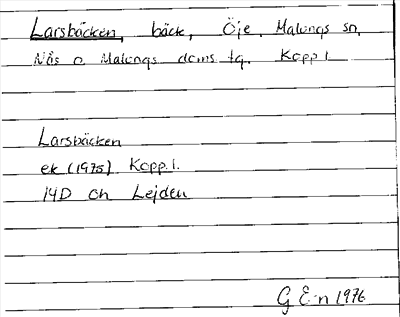 Larsbäcken, bäck, Öje, Malungs sn,
Nås o. Malungs doms tg. Kopp l
Larsbäcken
ek (1975) Kopp l.
14D Ch Lejden
G E-n 1976